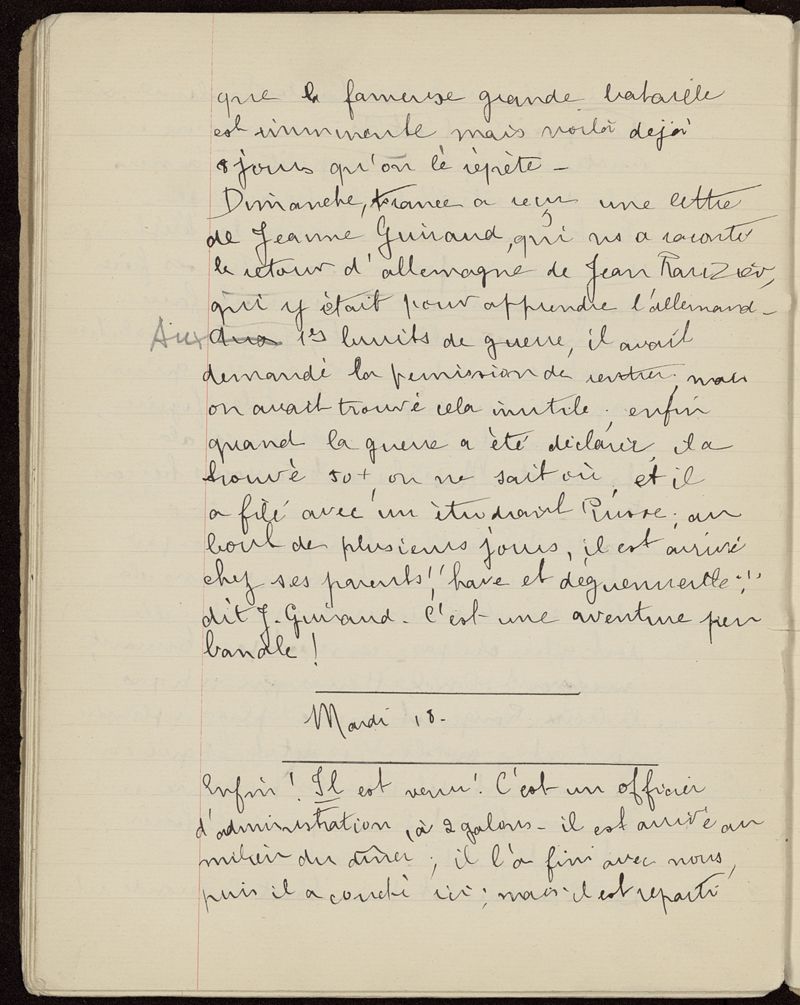 que la fameuse grande bataille
est imminente mais voilà dèjà
8 jours qu'on le rèpète -
Dimanche, France a reçu une lettre
de Jeanne Guiraud, qui ns a raconté
le retour d'allemagne de Jean
qui y était pour apprendre l'allemand -
Aux 1ers bruits de guerre, il avait
demandé la permission de rentrer, mais
on avait trouvé cela inutile ; enfin
quand la guerre a été déclarée, il a
trouvè 50+, on ne sait où, et il
a filé avec un ètudiant Russe ; au
bout de plusieurs jours, il est arrivé
chez ses parents "have et déguenillé !"
dit J. Guiraud - C'est une aventure peu
banale !
Mardi 18.
Enfin ! Il est venu ! C'est un officier
d'administration, à 2 galons - il est arrivé au
milieu du dîner ; il l'a fini avec nous,
puis il a couché ici ; mais il est reparti